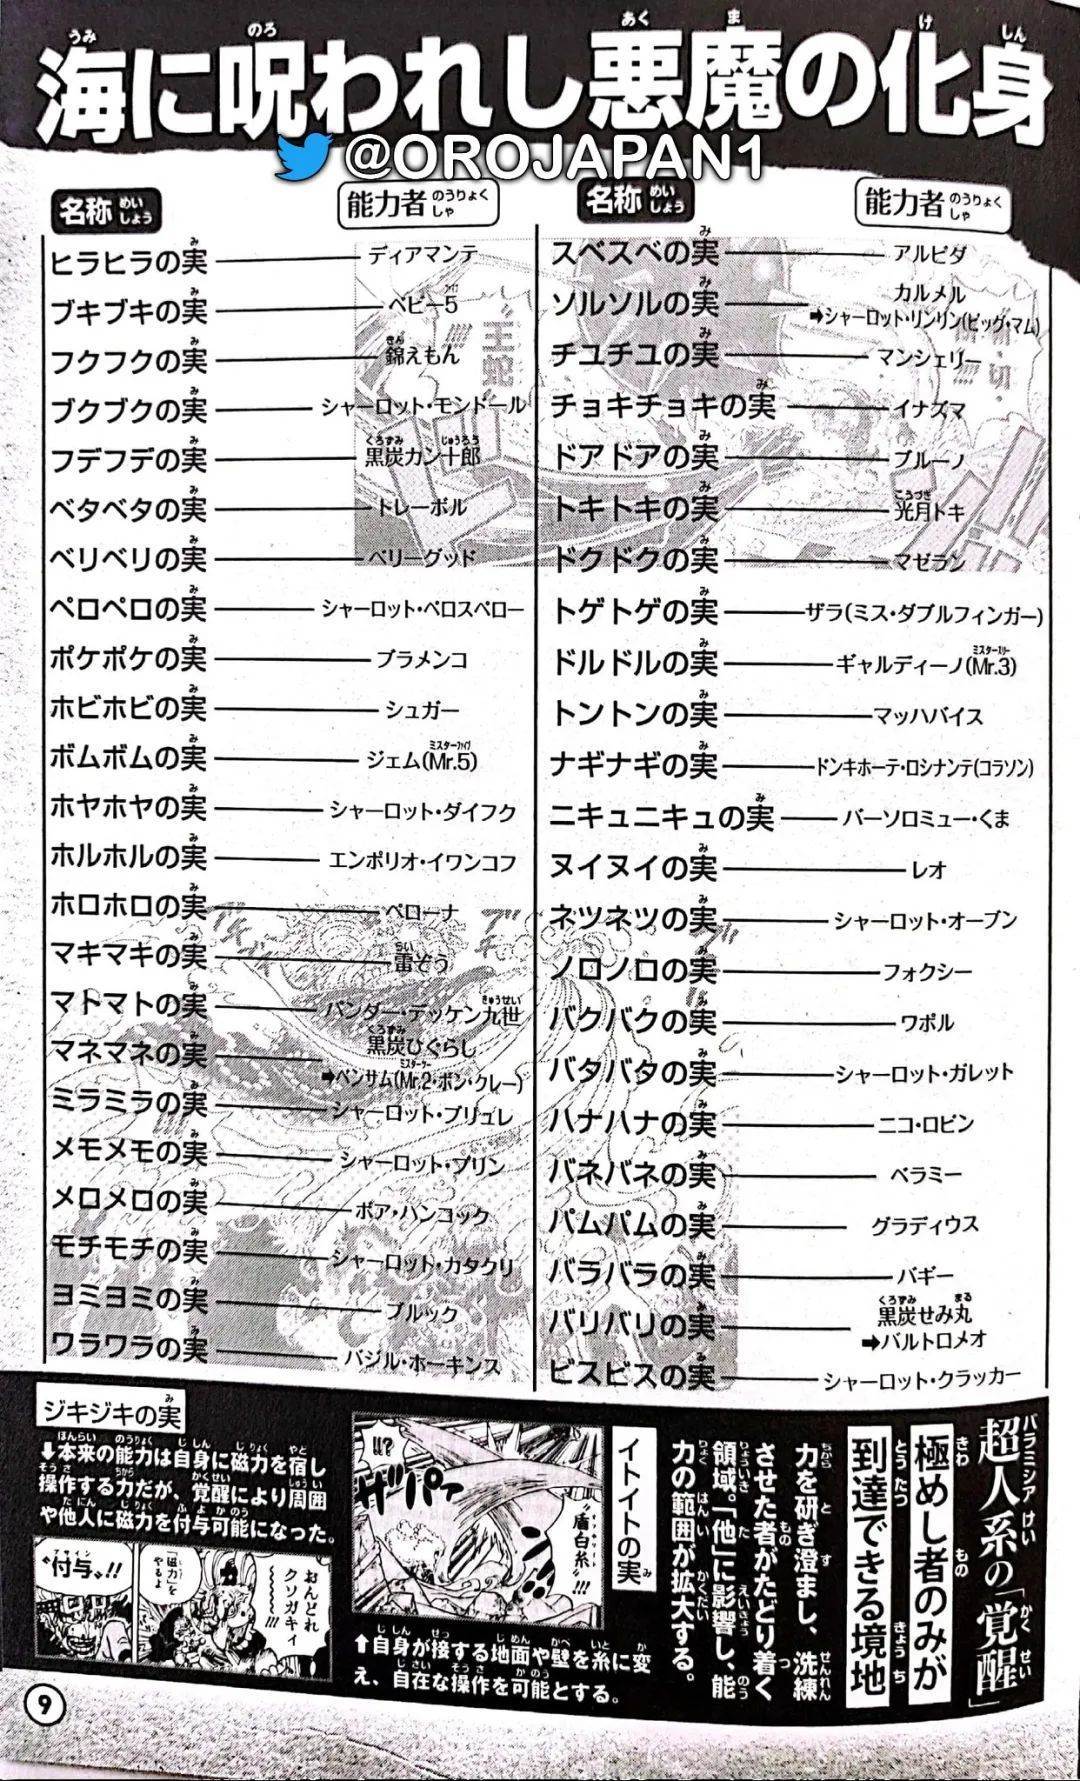 海に呪われし悪魔の化身
@OROJAPAN1
名称 めいしょう
能力者 のうりょくしゃ
名称 めいしょう
能力者 のうりょくしゃ
スベスベの実 アルビダ
ソルソルの実 カルメル
➡シャーロット・リンリン(ビッグ・マム)
チユチユの実 マンシェリー
チョキチョキの実 イナズマ
ドアドアの実 ブルーノ
トキトキの実 光月トキ
ドクドクの実 マゼラン
トゲトゲの実 ザラ(ミス・ダブルフィンガー)
ドルドルの実 ギャルディーノ(Mr.3)
トントンの実 マッハバイス
ナギナギの実 ドンキホーテ・ロシナンテ(コラソン)
ニキュニキュの実 バーソロミュー・くま
ヌイヌイの実 レオ
ネツネツの実 シャーロット・オーブン
ノロノロの実 フォクシー
バクバクの実 ワポル
バタバタの実 シャーロット・ガレット
ハナハナの実 ニコ・ロビン
バネバネの実 ベラミー
パムパムの実 グラディウス
バラバラの実 バギー
バリバリの実 黒炭せみ丸
➡バルトロメオ
ビスビスの実 シャーロット・クラッカー
ヒラヒラの実 ディアマンテ
ブキブキの実 ベビー5
フクフクの実 錦えもん
ブクブクの実 シャーロット・モンドール
フデフデの実 黒炭カン十郎
ベタベタの実 トレーボル
ベリベリの実 ベリーグッド
ペロペロの実 シャーロット・ペロスペロー
ポケポケの実 ブラメンコ
ホビホビの実 シュガー
ボムボムの実 ジェム(Mr.5)
ホヤホヤの実 シャーロット・ダイフク
ホルホルの実 エンポリオ・イワンコフ
ホロホロの実 ペローナ
マキマキの実 雷ぞう
マトマトの実 バンダー・デッケン九世
マネマネの実 黒炭ひぐらし
➡ベンサム(Mr.2・ボン・クレー)
ミラミラの実 シャーロット・ブリュレ
メモメモの実 シャーロット・プリン
メロメロの実 ボア・ハンコック
モチモチの実 シャーロット・カタクリ
ヨミヨミの実 ブルック
ワラワラの実 バジル・ホーキンス
超人系の「覚醒」
極めし者のみが
到達できる境地
力を研ぎ澄まし、洗練
させた者がたどり着く
領域。「他」に影響し、能
力の範囲が拡大する。
イトイトの実
!!?
“盾白糸”!!!
⬆自身が接する地面や壁を糸に変
え、自在な操作を可能とする。
ジキジキの実
⬇本来の能力は自身に磁力を宿し
操作する力だが、覚醒により周囲
や他人に磁力を付与可能になった。
おんどれ
クソガキィ
!!!
「磁力」を
やるよ
“付与”!!
9